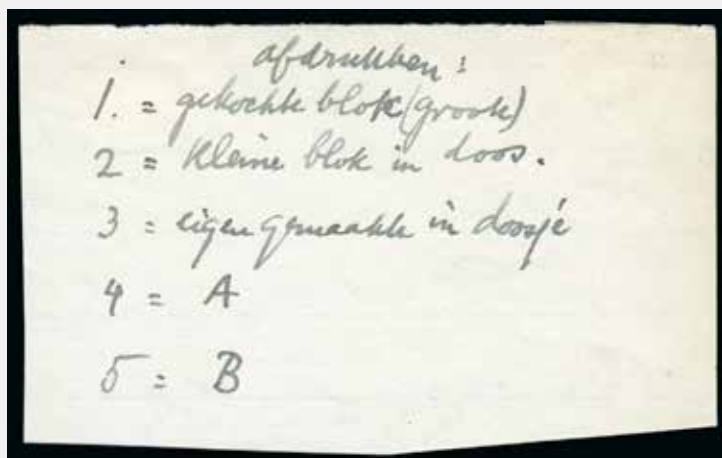 afdrukken:
1. = gekochte blok (groote)
2 = Kleine blok in doos.
3 = eigen gemaakte in doosje
4 = A
5 = B